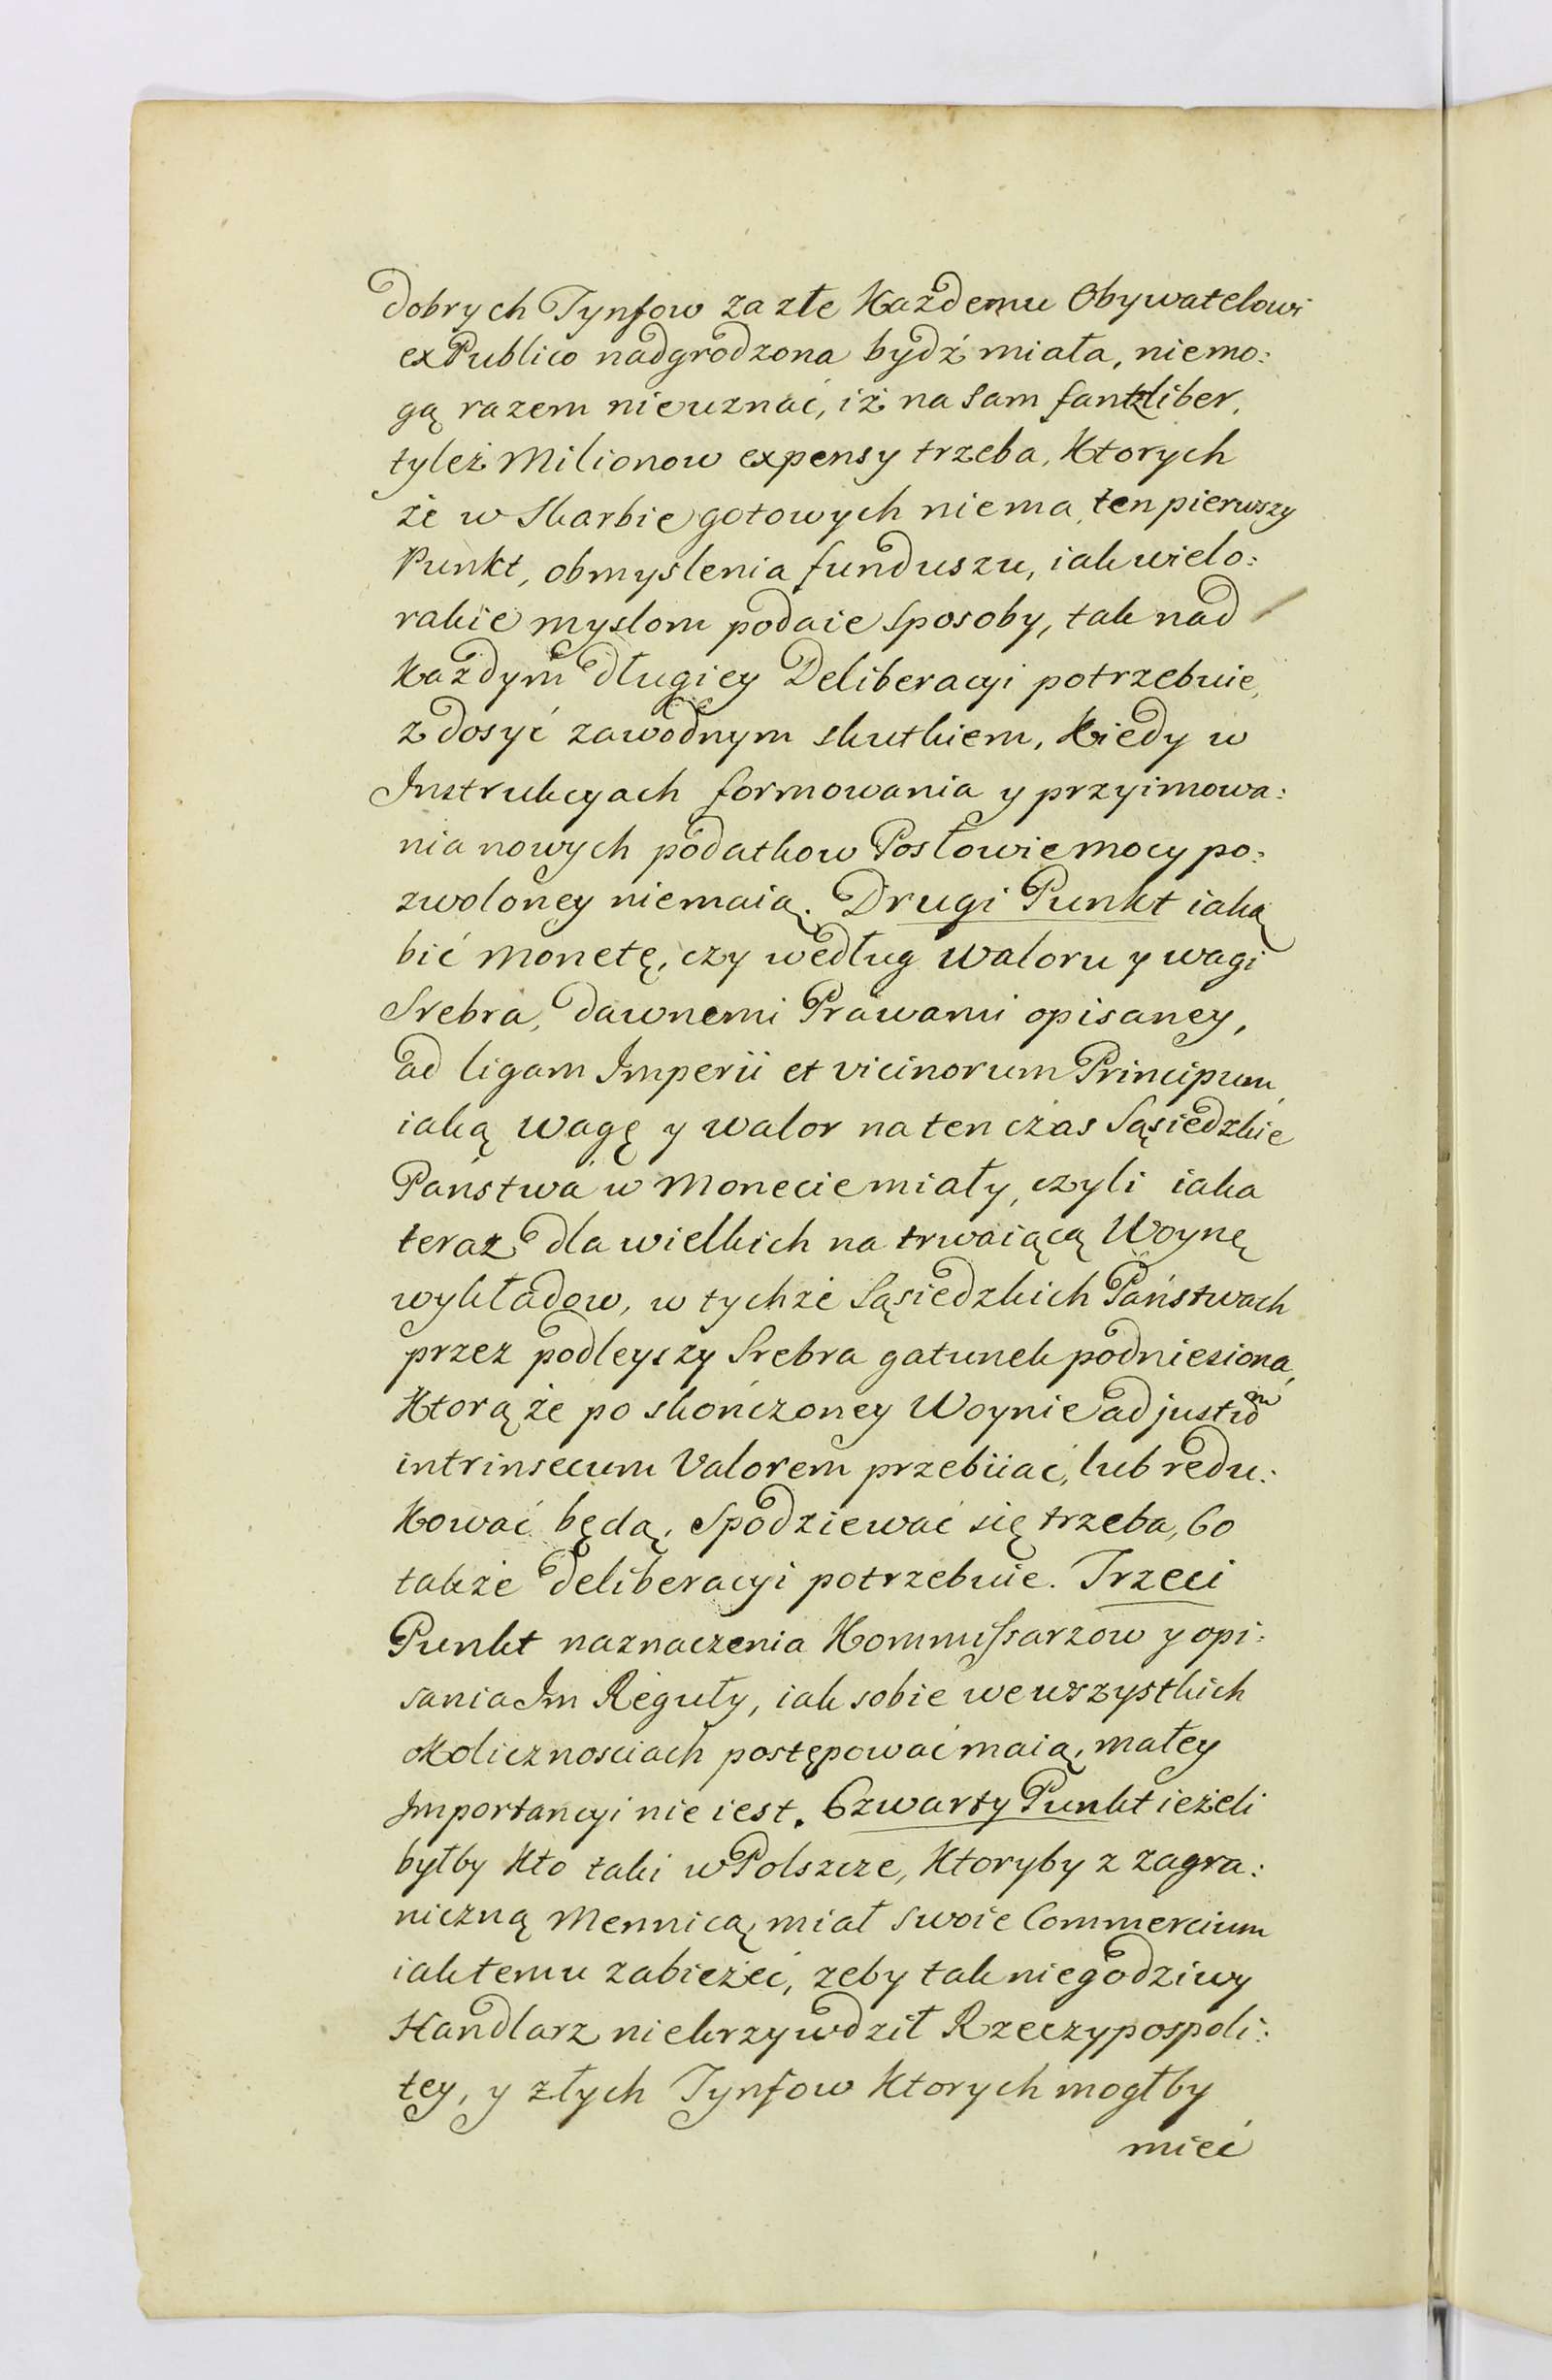 dobrych Tynfow za złe Każdemu Obywatelowi
ex Publico nadgrodzona bydź miała, niemo:
gą razem nieuznać, iż na sam fantzliber,
tyleż Milionow expensy trzeba, Ktorych
że w Skarbie gotowych niema, ten pierwszy
Punkt, obmyslenia funduszu, iak wielo:
rakie myslom podaie sposoby, tak nad
Każdym długiey Deliberacyi potrzebuie,
z dosyć zawodnym skutkiem, Kiedy w
Instrukcyach formowania y przyimowa:
nia nowych podatkow Posłowie mocy po:
zwoloney niemaią. Drugi Punkt iaką
bić monetę, czy według waloru y wagi
Srebra, dawnemi Prawami opisaney,
ad ligam Imperii et vicinorum Principum,
iaką wagę y walor na ten czas Sąsiedzkie
Państwa w Monecie miały, czyli iaka
teraz dla wielkich na trwaiącą Woynę
wykładow, w tychże Sąsiedzkich Państwach
przez podleyszy Srebra gatunek podniesiona,
Ktorą że po skończoney Woynie ad justio͠
intrinsecum Valorem przebiiać, lub redu:
Kować będą, spodziewać się trzeba, bo
także deliberacyi potrzebuie. Trzeci
Punkt naznaczenia Kommissarzow y opi:
sania Im Reguły, iak sobie we wszystkich
okolicznosciach postępować maią, małey
Importancyi nie iest. Czwarty Punkt ieżeli
byłby Kto taki w Polszcze, Ktoryby z zagra:
niczną Mennicą miał swoie Commercium
iak temu zabieżeć, zeby tak niegodziwy
Handlarz niekrzywdził Rzeczypospoli:
tey, y złych Tynfow Ktorych mogłby
mieć